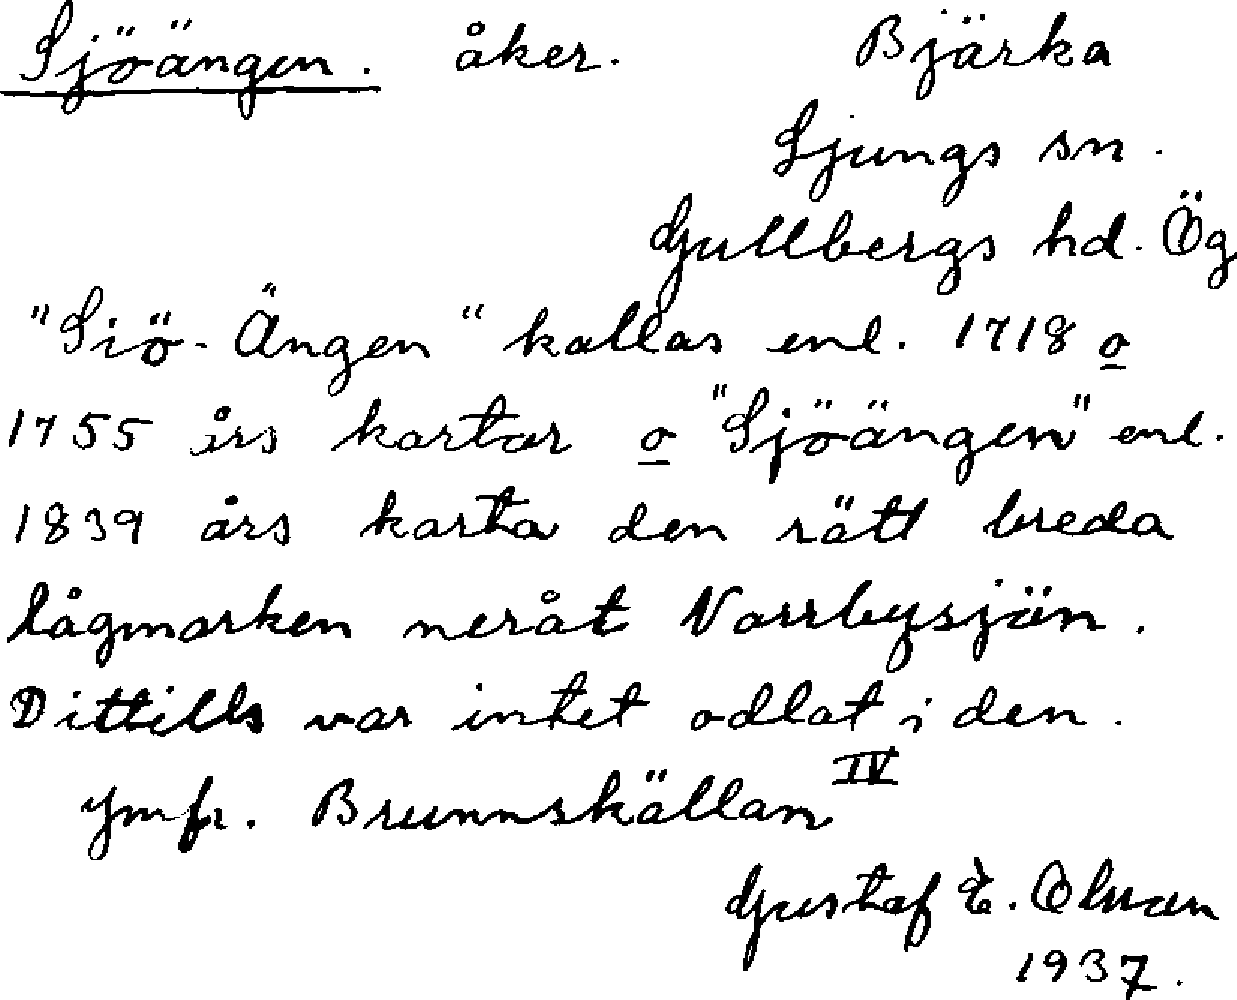 Sjöängen. åker. Bjärka
Ljungs sn.
Gullbergs hd. Ög
"Siö-Ängen" kallas enl. 1718 o
1755 års kartor o "Sjöängen" enl.
1839 års karta den rätt breda
lågmarken neråt Norrbysjön.
Dittills var intet odlat i den.
Jmfr. Brunnskällan IV
Gustaf E.
1937.